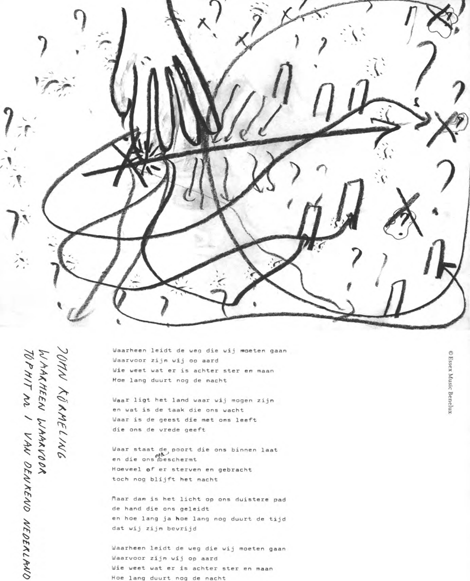 Waarheen leidt de weg die wij moeten gaan
Waarvoor zijn wij op aard
Wie weet wat er is achter ster en maan
Hoe lang duurt nog de nacht
Waar ligt het land waar wij mogen zijn
en wat is de taak die ons wacht
Waar is de geest die met ons leeft
die ons de vrede geeft
Waar staat de poort die ons binnen laat
en die ons beschermt
Hoeveel of er sterven en gebracht
toch nog blijft het macht
Maar dan is het licht op ons duistere pad
de hand die ons geleidt
en hoe lang ja hoe lang nog duurt de tijd
dat wij zijn bevrijd
Waarheen leidt de weg die wij moeten gaan
Waarvoor zijn wij op aard
Wie weet wat er is achter ster en maan
Hoe lang duurt nog de nacht
JOHN KÖRMELING
WAARHEEN WAARVOOR
TOPHIT NR 1 VAN DENKEND NEDERLAND
© Essex Music Benelux